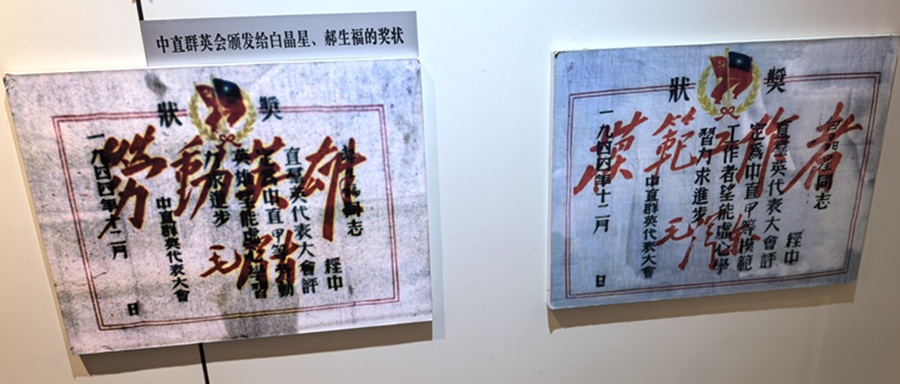 中直群英会颁发给白晶星、郝生福的奖状
奬狀
勞動英雄
毛澤東
同志 經中
直羣英代表大會評
爲中直甲等勞動
英雄望能虛心學習
力求進步
中直羣英代表大會
一九四四年十二月 日
奬狀
模範工作者
毛澤東
同志 經中
直羣英代表大會評
定爲中直甲等模範
工作者望能虛心學
習力求進步
中直羣英代表大會
一九四四年十二月 日